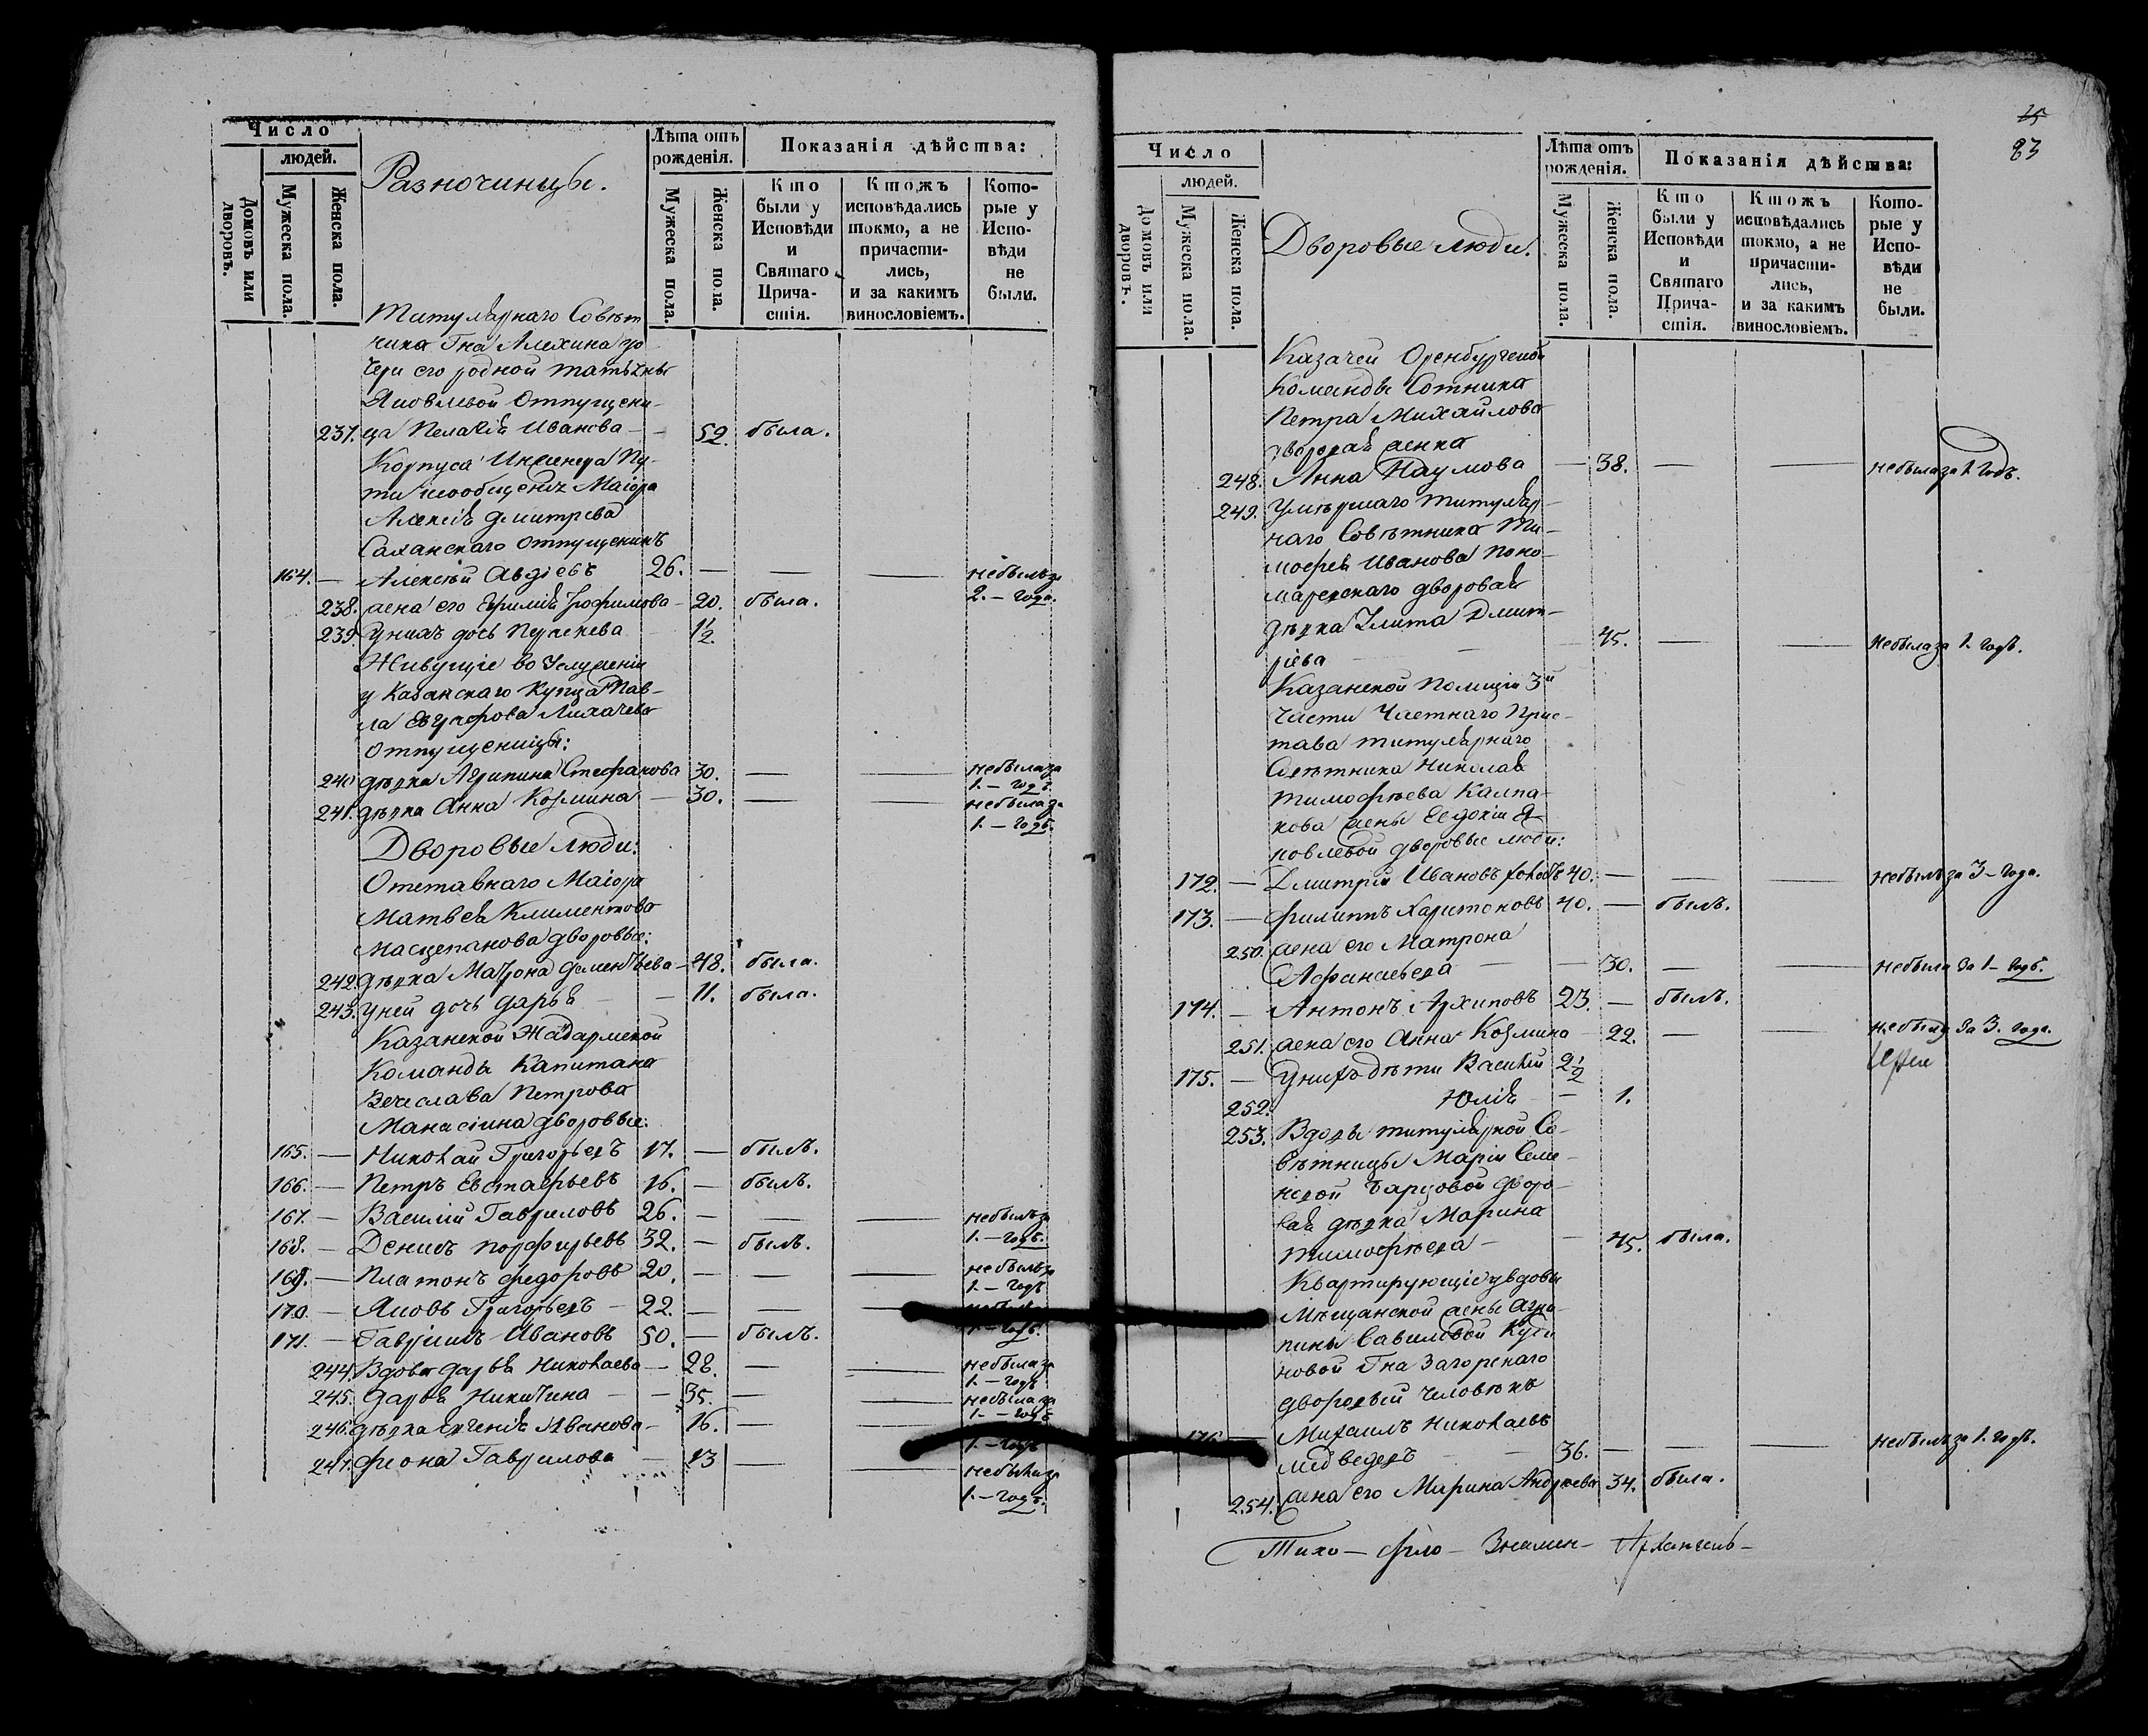 Число
людей.
Домовъ или дворовъ.
Мужеска пола.
Женска пола.
Разночинцы.
Лѣта отъ рожденія.
Мужеска пола.
Женска пола.
Показанія дѣйства:
Кто были у Исповѣди и Святаго Прича-стія.
Ктожъ исповѣдались токмо, а не причасти-лись, и за какимъ винословіемъ.
Кото-рые у Испо-вѣди не были.
Титулярнаго Совѣт
ника Гна Алехина до
чери его родной Татьяны
Яковлевой отпущени-
237. ца Пелагія Иванова — — 52. была.
Корпуса Инженера Пу-
ти сообщенія Маіора
Алексѣя Дмитрева
Саханскаго отпущеникъ
164. — Алексѣй Авдѣевъ 26. — — — небылъ за
238. жена его Ефимія Трофимова — 20. была. 2. — года.
239. Униахъ дочь Пелагея — 1 1/2
Живущіе во Услуженіи
у Казанскаго Купца Пав-
ла Евграфова Лихачева
отпущеницы:
240 дѣвка Агрипина Стефанова 30. — — небыла за
1. — годъ.
241. дѣвка Анна Козмина — 30. — — небыла за
1. — годъ.
Дворовые люди:
Отставнаго Маіора
Матвѣя Климентова
Масцепанова дворовые:
242. дѣвка Матрона Дементьева — 48. была.
243. Уней дочь Дарья — — 11. была.
Казанской Жадармской
Команды Капитана
Вечеслава Петрова
Манасіина дворовые:
165. — Николай Григорьевъ 17. — былъ.
166. — Петръ Евстафьевъ 16. — былъ.
167. — Василій Гавриловъ 26. — — — небылъ за
1. — годъ.
168. — Денисъ Порфирьевъ 32. — былъ.
169. — Платонъ Федоровъ 20. — — — небылъ за
1. — годъ
170. — Яковъ Григорьевъ — 22. — — —
1. — годъ.
171. — Гавріилъ Ивановъ 50. — былъ.
244. Вдова Дарья Николаева — 28. — — небыла за
1. — годъ
245. Дарья Никитина — — 35. — — небыла за
1. — годъ
246. дѣвка Евгенія Иванова — 16. — —
1. — годъ
247. Феона Гаврилова — 23 — — небыла за
1. — годъ.
83
Число
людей.
Домовъ или дворовъ.
Мужеска пола.
Женска пола.
Дворовые люди.
Лѣта отъ рожденія.
Мужеска пола.
Женска пола.
Показанія дѣйства:
Кто были у Исповѣди и Святаго Прича-стія.
Ктожъ исповѣдались токмо, а не причасти-лись, и за какимъ винословіемъ.
Кото-рые у Испо-вѣди не были.
Казачей Оренбургской
Команды Сотника
Петра Михайлова
дворовая женка
248. Анна Наумова — 38. — — небыла за 1. годъ.
249. Умершаго титуляр-
наго Совѣтника Ти-
мофея Иванова Поно-
маревскаго дворовая
дѣвка Улита Дмит-
ріева — — 45. — — небыла за 1. годъ.
Казанской Полиціи 3й
Части Частнаго Прис-
тава титулярнаго
Совѣтника Николая
Тимофѣева Калпа-
кова жены Евдокіи Я-
ковлевой дворовые люди:
172. — Дмитрій Ивановъ холостъ 40. — — — небылъ за 3 — года.
173. — Филиппъ Харитоновъ 40. — былъ.
250. жена его Матрона
Афанасьева — — 30. — — небыла за 1 — годъ.
174. — Антонъ Архиповъ 23. — былъ.
251. жена его Анна Козмина — 22. — — небыла за 3. года.
175. — Унихъ дѣти Василій 2 1/2
252. Юлія — 1.
253. Вдовы титулярной Со-
вѣтницы Маріи Семе-
новой дворо-
вая дѣвка Марина
Тимофѣева — — 45. была.
Квартирующіе у вдовы
Мѣщанской жены Агри-
пины Савиловой Куди
новой Гна Загорскаго
дворовый человѣкъ
176. — Михаилъ Николаевъ
Медведевъ — 36. — — — небылъ за 1. годъ.
254. жена его Марина Андреева 34. была.
Тихо — Фило — Знамен — Архангель —